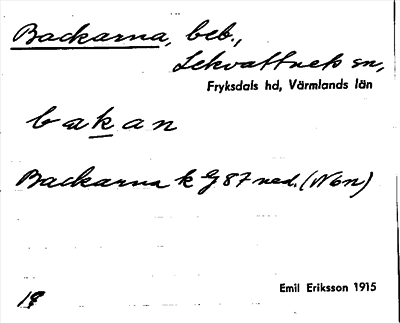 Backarna, beb.,
Lekvattnets sn,
Fryksdals hd, Värmlands län
bakan
Backarna k G 87 ned. (Nbn)
Emil Eriksson 1915